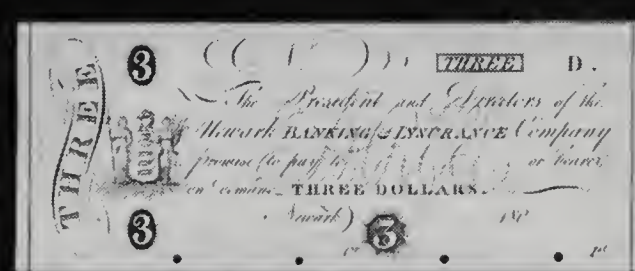 THREE
3 THREE D.
The President and Directors of the
Newark BANKING & INSURANCE Company
promise to pay to or bearer
on demand THREE DOLLARS.
Newark 180
3
3